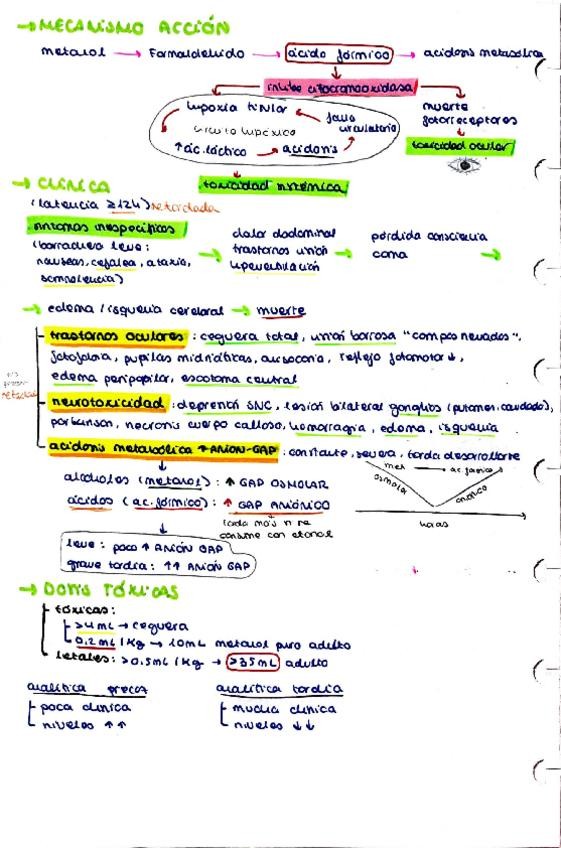 → MECANISMO ACCIÓN
metanol → Formaldehído → ácido fórmico → acidosis metabólica
inhibe citocromooxidasa
hipoxia tisular
fallo circulatorio
circuito hipóxico
↑ ác. láctico → acidosis
muerte fotorreceptores
toxicidad ocular
→ CLÍNICA
toxicidad sistémica
(latencia ≥12h) retardada
síntomas inespecíficos
(borrachera leve:
náuseas, cefalea, ataxia,
somnolencia)
→ dolor abdominal
trastornos visión
hiperventilación
→ pérdida consciencia
coma →
→ edema / isquemia cerebral → muerte
trastornos oculares: ceguera total, visión borrosa "campos nevados",
fotofobia, pupilas midriáticas, anisocoria, reflejo fotomotor ↓,
edema peripapilar, escotoma central
neurotoxicidad: depresión SNC, lesión bilateral ganglios (putamen, caudado),
parkinson, necrosis cuerpo calloso, hemorragia, edema, isquemia
acidosis metabólica ↑ ANION-GAP: constante, severa, tarda desarrollarse
alcoholes (metanol): ↑ GAP OSMOLAR
ácidos (ac. fórmico): ↑ GAP ANIÓNICO
tarda más si se
consume con etanol
met → ac. fórmico
osmolar
aniónico
horas
leve: poco ↑ ANIÓN GAP
grave tardía: ↑↑ ANIÓN GAP
→ DOSIS TÓXICAS
tóxicas:
>4mL → ceguera
0.2mL/kg → 10mL metanol puro adulto
letales: >0.5mL/kg → >35mL adulto
analítica precoz
poca clínica
niveles ↑↑
analítica tardía
mucha clínica
niveles ↓↓